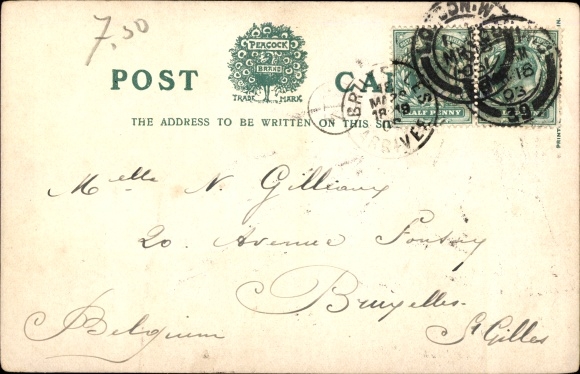 7,50
PEACOCK
BRAND
TRADE MARK
POST CARD
THE ADDRESS TO BE WRITTEN ON THIS SIDE
HALF PENNY
Melle N. Gillieaux
20. Avenue Fonsny
Bruxelles.
St Gilles
Belgium